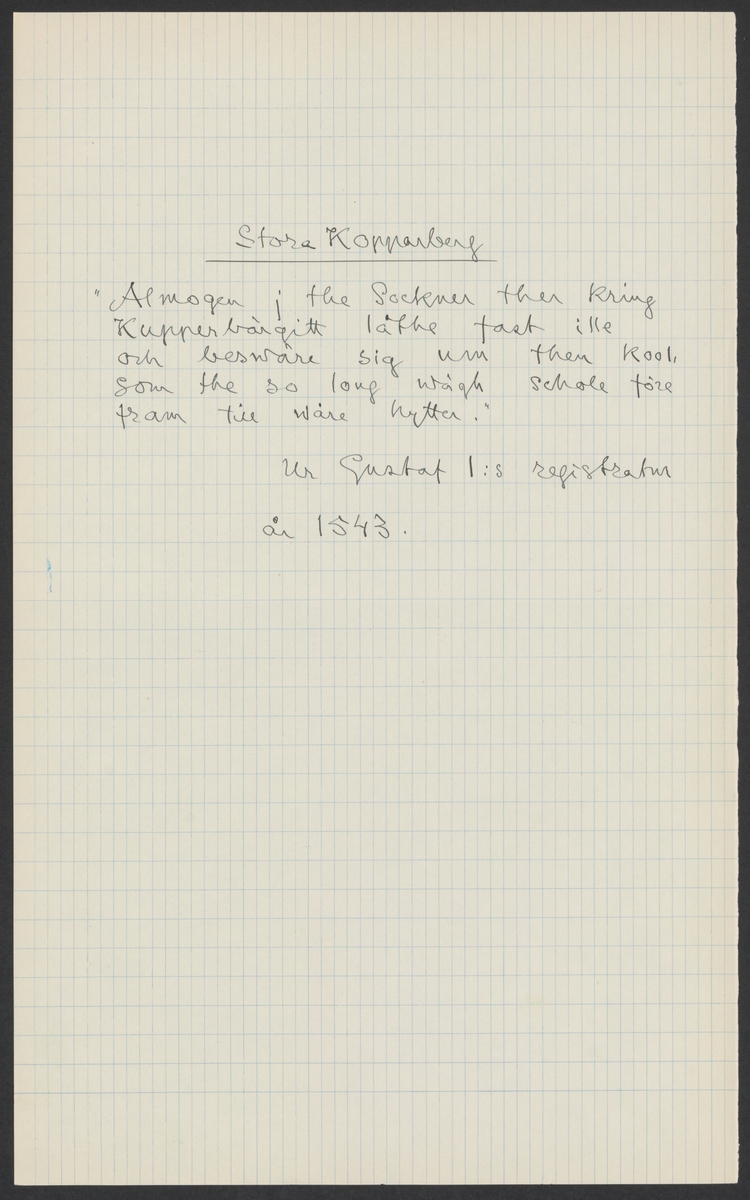 Stora Kopparberg
"Almogen j the Sockner ther kring
Kupperbärgitt låthe fast ille
och beswäre sig um then kool,
som the so long wägh schole före
fram till wåre hytter."
Ur Gustaf I:s registratur
år 1543.